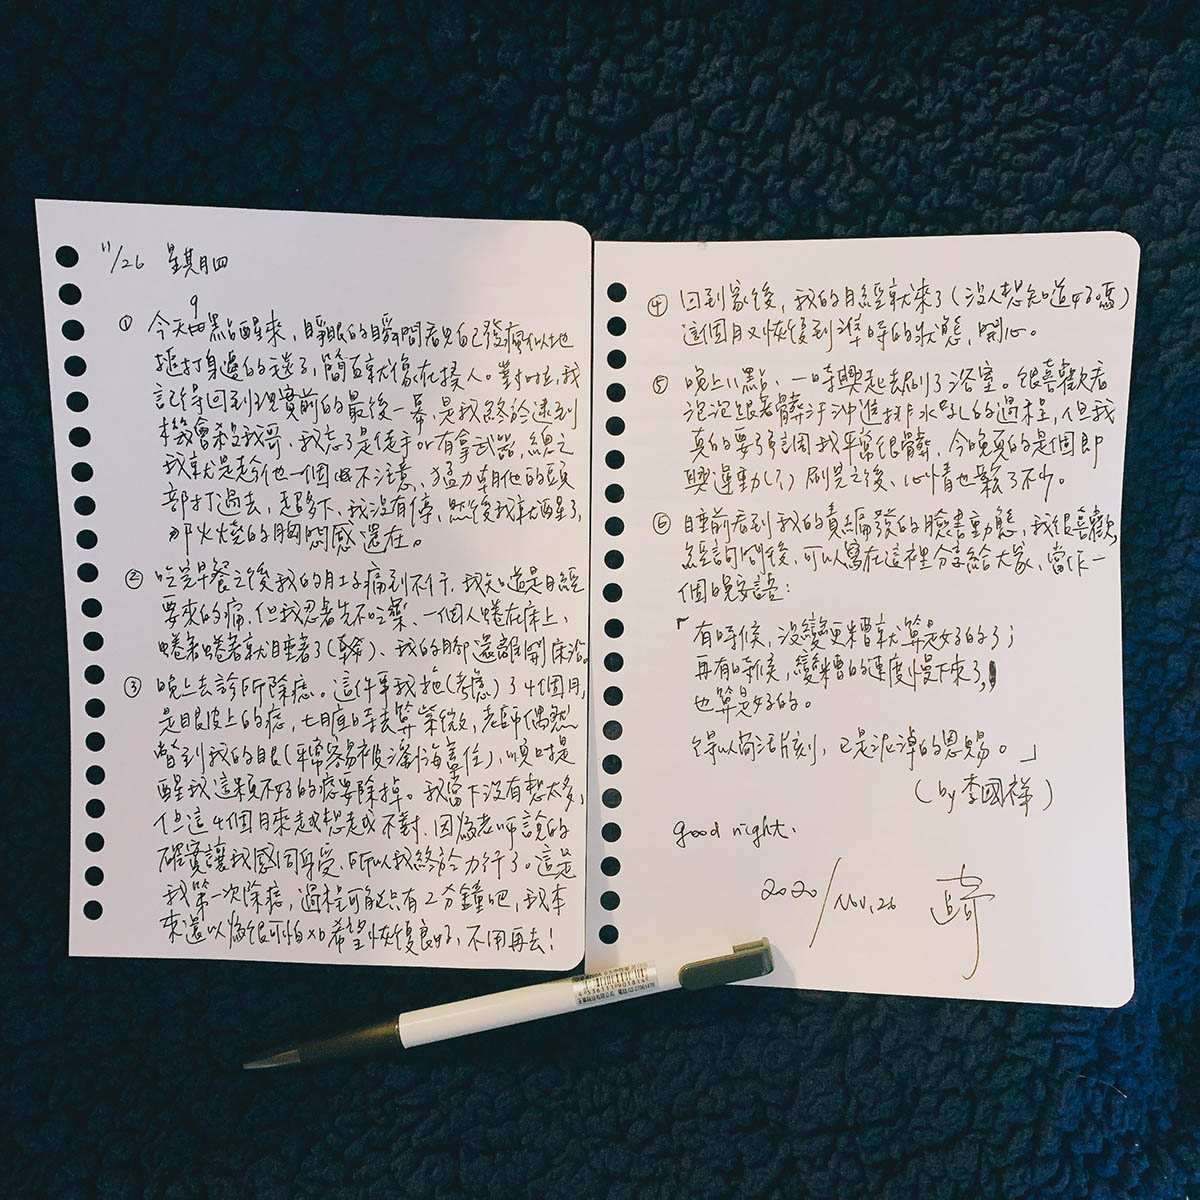 11/26 星期四
① 今天9點醒來，睜眼的瞬間看見自己發瘋似地
捶打身邊的毯子，簡直就像在揍人。對啦，我
記得回到現實前的最後一幕，是我終於逮到
機會殺我哥，我忘了是徒手or有拿武器，總之
我就是趁他一個不注意，猛力朝他的頭
部打過去，超多下，我沒有停，然後我就醒了，
那火燒的胸悶感還在。
② 吃完早餐之後我的肚子痛到不行，我知道是月經
要來的痛，但我忍著先不吃藥，一個人蜷在床上，
蜷著蜷著就睡著了(幹)、我的腳還離開床沿。
③ 晚上去診所除痣。這件事我拖(考慮)了4個月，
是眼皮上的痣，七月底時去算紫微，老師偶然
瞥到我的眼(平常容易被瀏海蓋住)，喚提
醒我這顆不好的痣要除掉。我當下沒有想太多，
但這4個月來越想越不對，因為老師說的
確實讓我感同身受，所以我終於力行了。這是
我第一次除痣，過程可能只有2分鐘吧，我本
來還以為很可怕xD希望恢復良好，不用再去！
④ 回到家後，我的月經就來了(沒人想知道好嗎)
這個月又恢復到準時的狀態，開心。
⑤ 晚上11點，一時興起去刷了浴室。很喜歡看
泡泡跟著髒汙沖進排水孔的過程，但我
真的要強調我平常很髒，今晚真的是個即
興運動(?)刷完之後，心情也鬆了不少。
⑥ 睡前看到我的責編發的臉書動態，我很喜歡，
經詢問後，可以寫在這裡分享給大家，當作一
個晚安語：
「有時候，沒變更糟就算是好的了；
再有時候，變糟的速度慢下來了，
也算是好的。
得以苟活片刻，已是泥淖的恩賜。」
(by 李國祥)
good night.
2020/Nov,26 崎